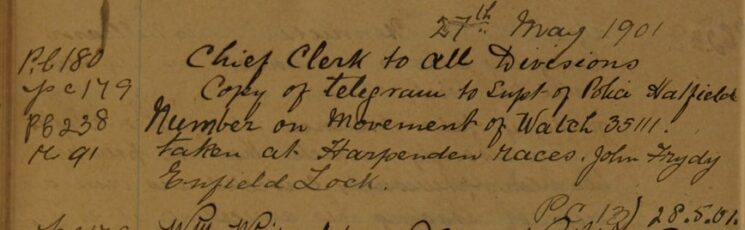 27th May 1901
P.C 180 Chief Clerk to all Divisions
p c 179 Copy of telegram to Supt of Police Hatfield
P.C 238 Number on Movement of Watch 35111.
91 taken at Harpenden races. John
Enfield Lock.
P.C. 28.5.01.